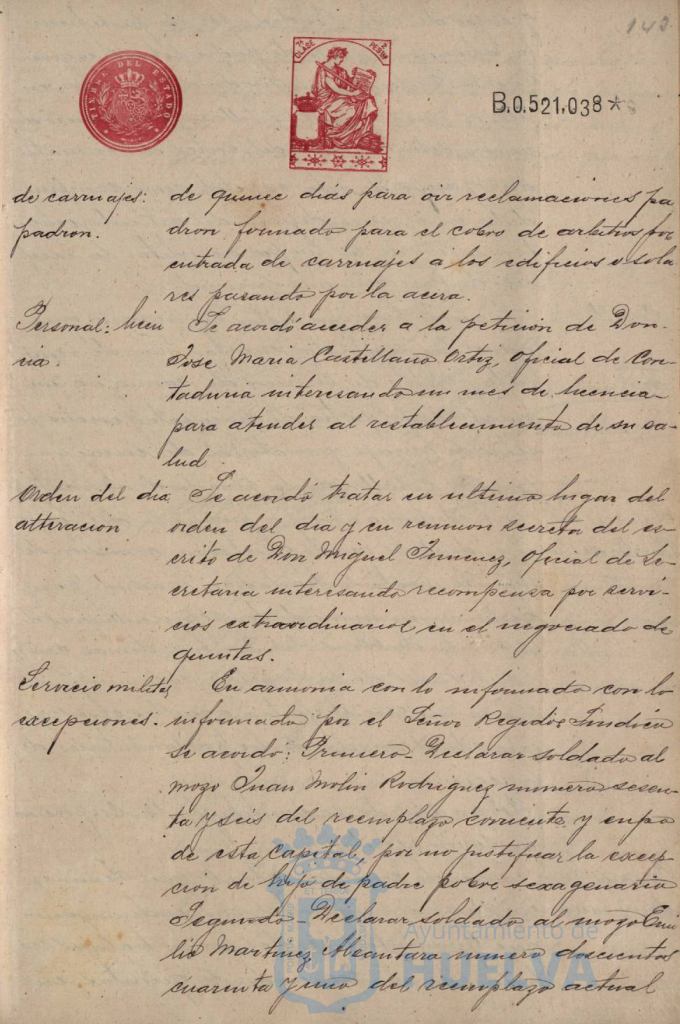 143
TIMBRE DEL ESTADO
7ª CLASE 2 PESETAS
B.0.521.038*
de carruajes:
padron.
de quince dias para oir reclamaciones pa
dron formado para el cobro de arbitrios por
entrada de carruajes a los edificios o sola
res pasando por la acera.
Personal: licen
cia.
Se acordó acceder a la petición de Don
Jose Maria Castellano Ortiz, Oficial de Con
taduria interesando un mes de licencia
para atender al restablecimiento de su sa-
lud.
Orden del dia
alteracion
Se acordó tratar en ultimo lugar del
orden del dia y en reunion secreta del es-
crito de Don Miguel Jimenez, Oficial de Se-
cretaria interesando recompensa por servi-
cios extraordinarios en el negociado de
quintas.
Servicio militar
excepciones.
En armonia con lo informado con lo
informado por el Señor Regidor Sindico
se acordó: Primero - Declarar soldado al
mozo Juan Molin Rodriguez numero sesen-
ta y seis del reemplazo corriente y cupo
de esta Capital, por no justificar la excep
cion de hijo de padre pobre sexagenario
Segundo - Declarar soldado al mozo Emi
lio Martinez Alcantara numero doscientos
cuarenta y uno del reemplazo actual
Ayuntamiento de
HUELVA